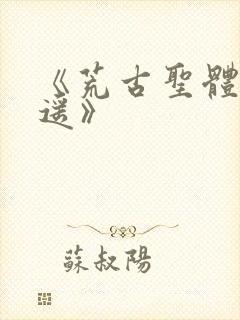 《荒古聖體
遥》
蘇叔陽